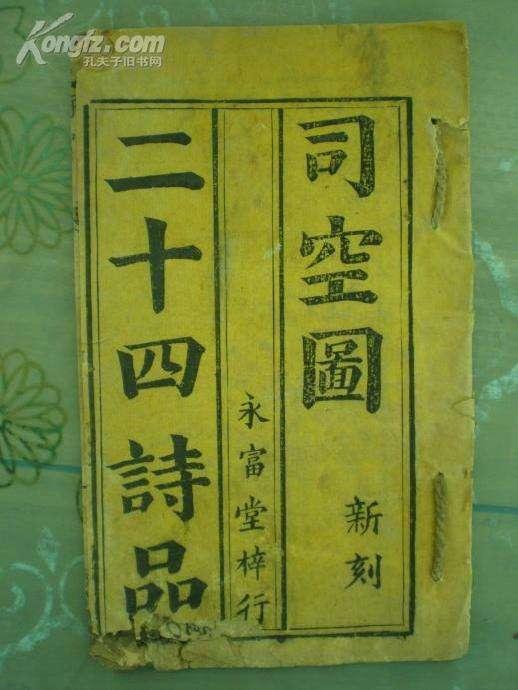 Kongfz.com
孔夫子旧书网
司空圖
新刻
永富堂梓行
二十四詩品